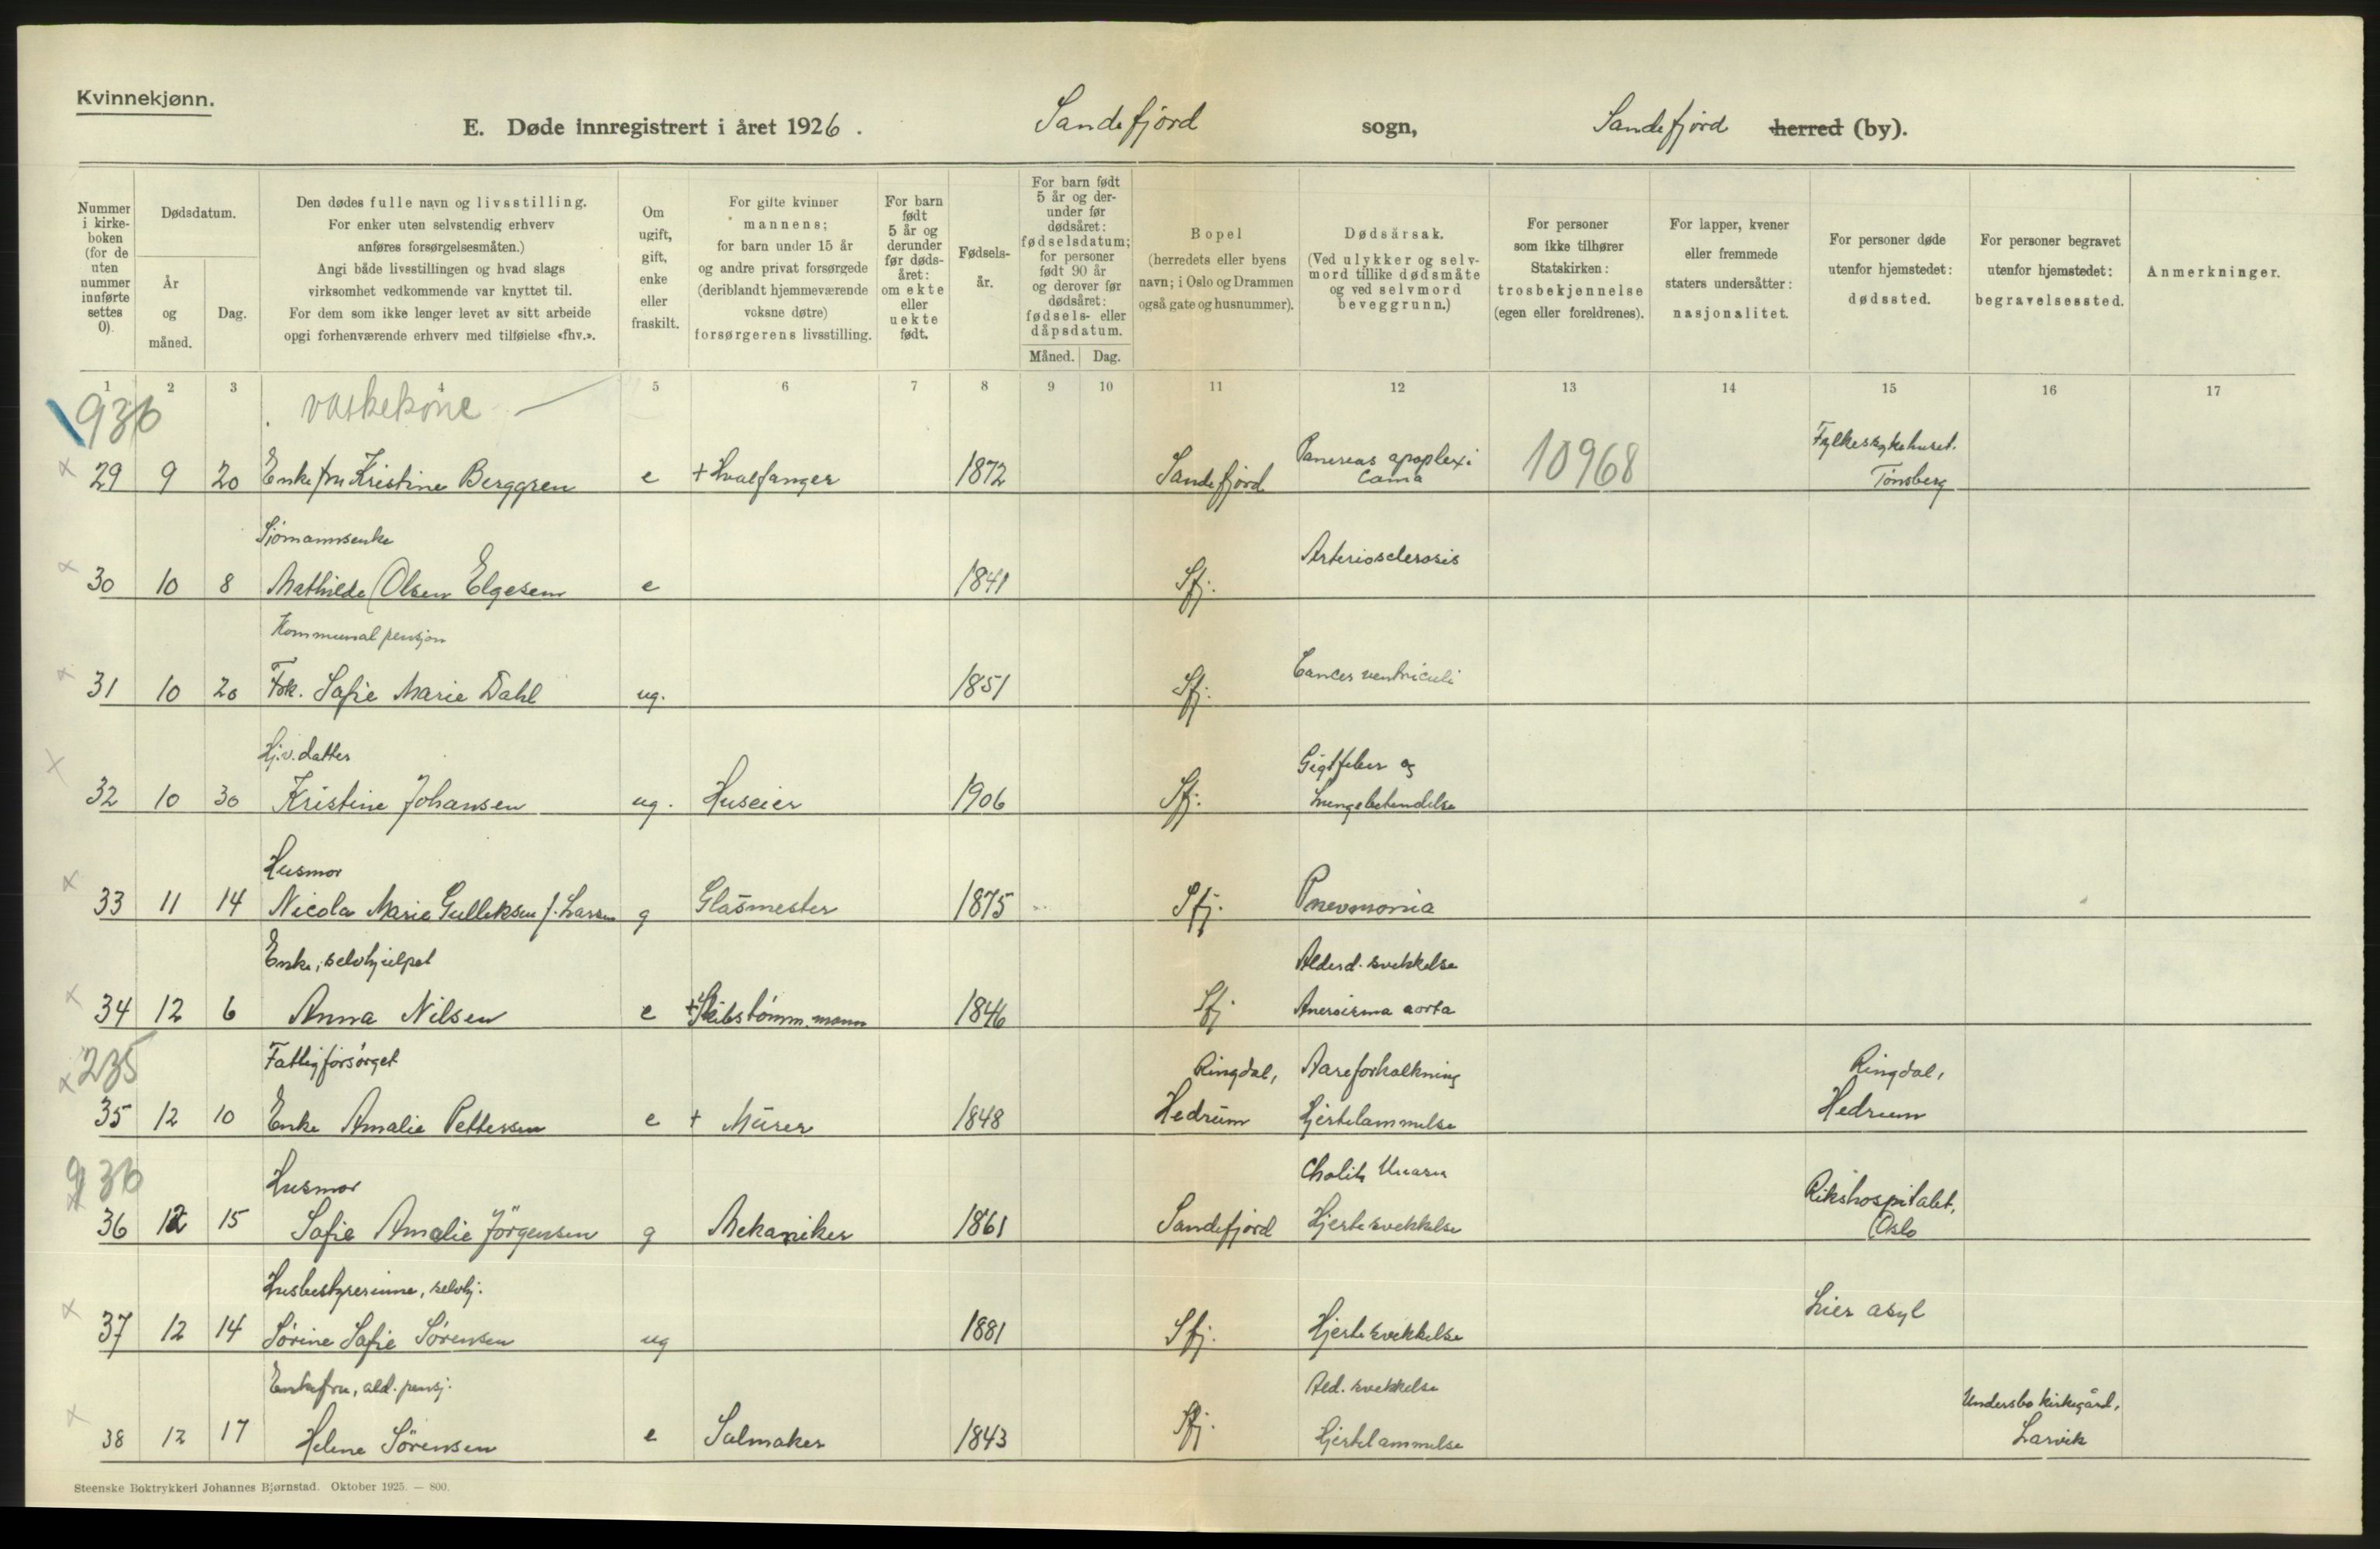 Kvinnekjønn.
E. Døde innregistrert i året 1926. Sandefjord sogn, Sandefjord herred (by).
Nummer i kirkeboken (for de uten nummer innførte settes 0).
Dødsdatum.
År og måned.
Dag.
Den dødes fulle navn og livsstilling.
For enker uten selvstendig erhverv
anføres forsørgelsesmåten.)
Angi både livsstillingen og hvad slags
virksomhet vedkommende var knyttet til.
For dem som ikke lenger levet av sitt arbeide
opgi forhenværende erhverv med tilføielse «fhv.».
Om ugift, gift, enke eller fraskilt.
For gifte kvinner
mannens;
for barn under 15 år
og andre privat forsørgede
(deriblandt hjemmeværende
voksne døtre)
forsørgerens livsstilling.
For barn født 5 år og derunder før dødsåret: om ekte eller uekte født.
Fødselsår.
For barn født 5 år og derunder før dødsåret: fødselsdatum; for personer født 90 år og derover før dødsåret: fødsels- eller dåpsdatum.
Måned. Dag.
Bopel
(herredets eller byens
navn; i Oslo og Drammen
også gate og husnummer).
Dødsårsak.
(Ved ulykker og selvmord tillike dødsmåte og ved selvmord beveggrunn.)
For personer
som ikke tilhører
Statskirken:
trosbekjennelse
(egen eller foreldrenes).
For lapper, kvener
eller fremmede
staters undersåtter:
nasjonalitet.
For personer døde
utenfor hjemstedet:
dødssted.
For personer begravet
utenfor hjemstedet:
begravelsessted.
Anmerkninger.
1 2 3 4 5 6 7 8 9 10 11 12 13 14 15 16 17
936 vaskekone
Fylkessykehuset.
x 29 9 20 Enkefru Kristine Berggren e + Hvalfanger 1872 Sandefjord Pancreas apoplexi Coma 10968 Tønsberg
Sjømannsenke
x 30 10 8 Mathilde Olsen Elgesem e 1841 Sfj. Arteriosclerosis
Kommunal pensjon
x 31 10 20 Frk. Sofie Marie Dahl ug. 1851 Sfj. Cancer ventriculi
Hj.v. datter Gigtfeber og
x 32 10 30 Kristine Johansen ug. Huseier 1906 Sfj. Lungebetendelse
Husmor
x 33 11 14 Nicola Marie Gulliksen f. Larsen g Glasmester 1875 Sfj. Pnevmonia
Enke, selvhjulpet Alderd. svekkelse
x 34 12 6 Anna Nilsen e + Skibstømm.mann 1846 Sfj aorta
x 235 Fattigforsørget Ringdal, Aareforkalkning Ringdal,
35 12 10 Enke Amalie Pettersen e + Murer 1848 Hedrum Hjertelammelse Hedrum
936 Husmor Rikshospitalet,
x 36 12 15 Sofie Amalie Jörgensen g Mekaniker 1861 Sandefjord Hjertesvekkelse Oslo
Husbestyrerinne, selvhj. Lier asyl
x 37 12 14 Sørine Sofie Sørensen ug 1881 Sfj. Hjertesvekkelse
Enkefru, ald. pensj. Ald. svekkelse Undersbo kirkegård,
x 38 12 17 Helene Sörensen e Salmaker 1843 Sfj. Hjertelammelse Larvik
Steenske Boktrykkeri Johannes Bjørnstad. Oktober 1925. — 800.